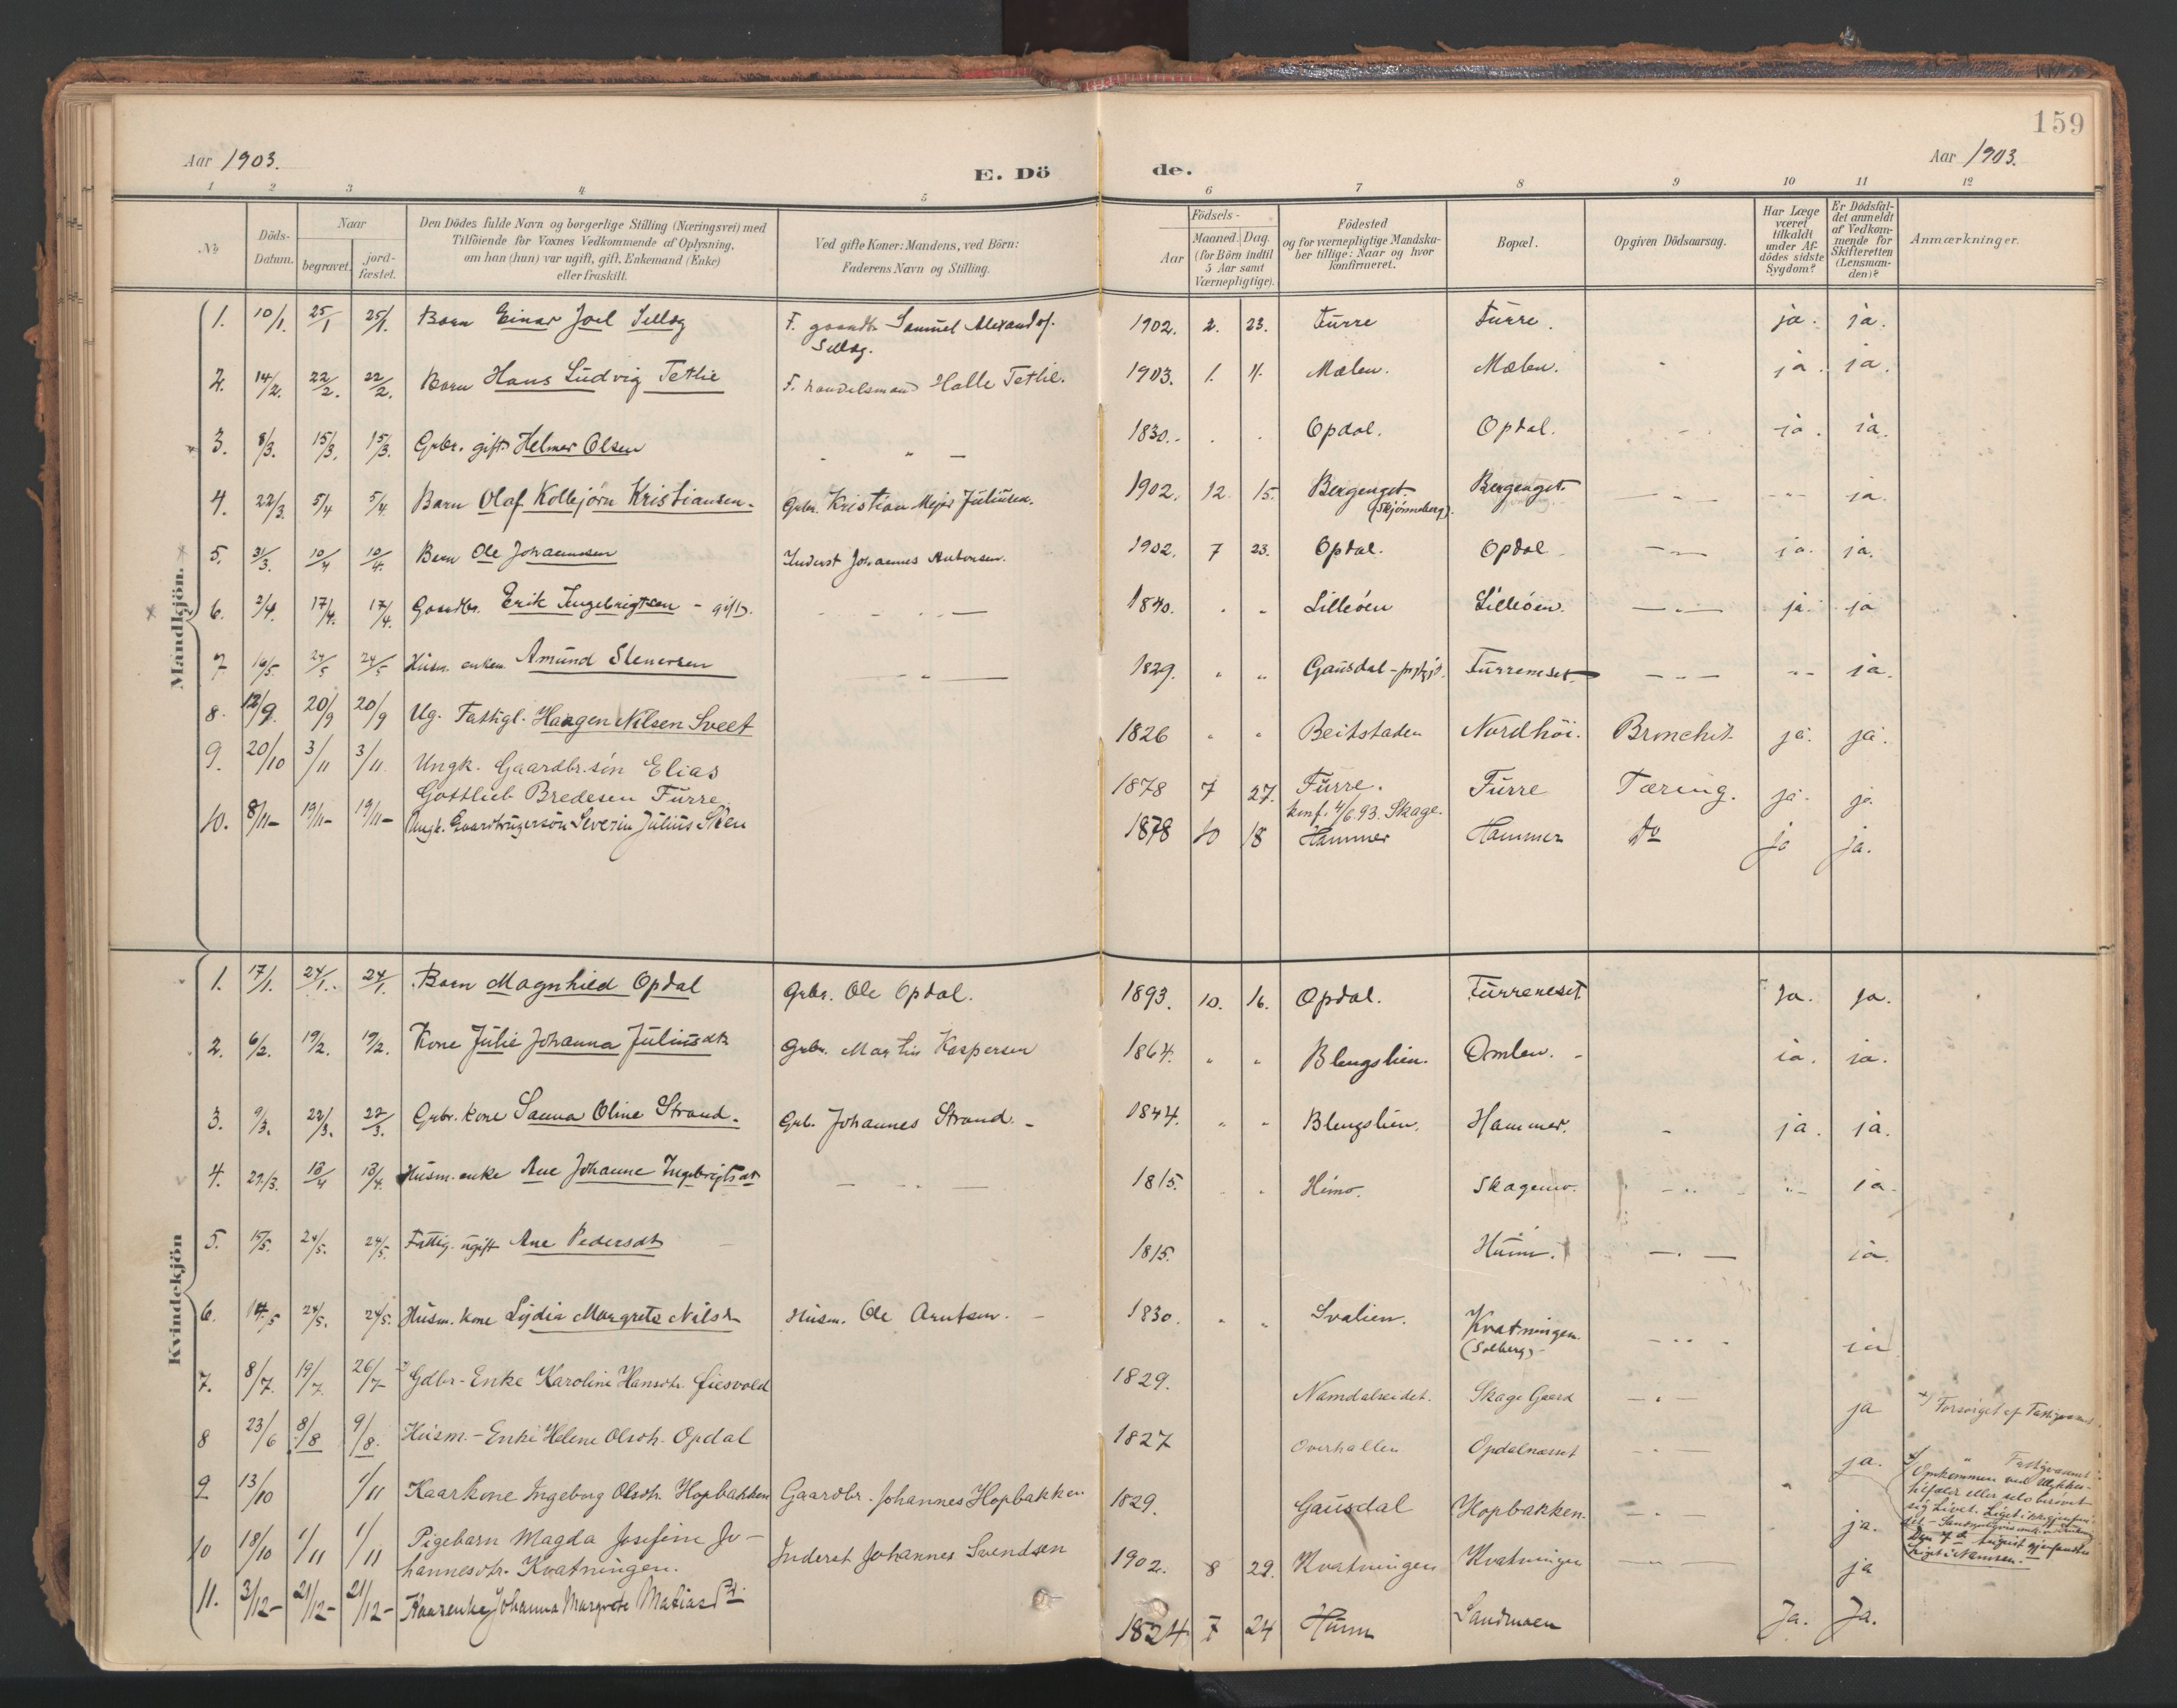 159
Aar 1903.
E. Dö
de.
Aar 1903.
1 2 3 4 5 6 7 8 9 10 11 12
No
Döds-
Datum.
Naar
begravet.
jord-
fæstet.
Den Dödes fulde Navn og borgerlige Stilling (Næringsvei) med
Tilföiende for Voxnes Vedkommende af Oplysning,
om han (hun) var ugift, gift, Enkemand (Enke)
eller fraskilt.
Ved gifte Koner: Mandens, ved Börn:
Faderens Navn og Stilling.
Födsels-
Aar
Maaned. Dag.
(for Börn indtil
5 Aar samt
Værnepligtige).
Födested
og for værnepligtige Mandska-
ber tillige: Naar og hvor
konfirmeret.
Bopæl.
Opgiven Dödsaarsag.
Har Læge
været
tilkaldt
under Af-
dödes sidste
Sygdom?
Er Dödsfal-
det anmeldt
af Vedkom-
mende for
Skifteretten
(Lensman-
den)?
Anmærkninger.
Mandkjön.
1. 10/1. 25/1 25/1. Barn Einar Joel Selläg F. gaardbr. Samuel Alexandsf. 1902. 2. 23. Furre Furre. ja. ja.
Selläg.
2. 14/2. 22/2. 22/2. Barn Hans Ludvig Tetlie F. handelsmand Halle Tetlie. 1903. 1. 4. Mælen. Mælen. ja. ja.
3. 8/3. 15/3. 15/3. Grbr. gift Helmer Olsen 1830. Opdal. Opdal. ja. ja.
4. 22/3. 5/4 5/4. Barn Olaf Kolbjörn Kristiansen. Grbr. Kristian Mejer Juliusen. 1902. 12. 15. Bergenget. Bergenget. ja.
(Skjönneberg).
5. 31/3. 10/4 10/4. Barn Ole Johannesen Inderst Johannes Antonsen. 1902. 7 23. Opdal. Opdal ja. ja.
6. 3/4. 17/4. 17/4. Gaardbr. Erik Ingebrigtsen - gift. 1840. Lilleöen Lilleöen. ja. ja
7 16/5. 24/5 24/5 Husm. enkem. Amund Stenersen 1829. Gausdal - Furremset. ja.
8. 12/9. 20/9 20/9 Ug. Fattigl. Haagen Nilsen Sveet 1826 Beitstaden Nordhöi. Bronchit. ja. ja.
9. 20/10 3/11 3/11 Ungk. Gaardbr.sön Elias
Gottlieb Bredesen Furre. 1878 7 27. Furre. Furre Tæring. ja. ja.
konf. 4/6 93. Skage.
10. 8/11- 19/11- 19/11- Ungk. Gaardbrugersön Severin Julius Skeu 1878 10 18 Hammer Hammer Do ja ja.
Kvindekjön
1. 17/1. 24/1. 24/1. Barn Magnhild Opdal Grbr. Ole Opdal. 1893. 10. 16. Opdal. Furreneset. Ja. ja.
2. 6/2. 19/2. 19/2. Kone Julie Johanna Juliusdtr Grbr. Martin Kaspersen 1864. Blengslien. Omlen. ja. ja.
3. 9/3. 22/3. 22/3. Grbr. kone Sanna Oline Strand. Grb. Johannes Strand. 1844. Blengslien. Hammer. ja. ja.
4. 29/3. 13/4 13/4. Husm. enke Ane Johanne Ingebrigtsdtr 1815. Himo. Skagemo. ja.
5. 15/5. 24/5. 24/5. Fattig. ugift Ane Pedersdtr 1815. Hunn. ja.
6. 14/5 24/5. 24/5. Husm. kone Lydia Margrete Nilsd. Husm. Ole Arntsen. 1830. Svalien. Kvatningen. ja
(Solberg)
7. 8/7. 19/7. 26/7 Gdbr-Enke Karoline Hansdtr. Fiesvold 1829. Namdalseidet. Skage Gaard ja Forsörget af Fattigvæsenet.
8 23/6 8/8 9/8. Husm.-Enke Helene Olsdtr. Opdal 1827 Overhallen Opdalnæsset ja. Fattigvæsenet.
9 13/10 1/11 Kaarkone Ingeborg Olsdtr. Hopbakken Gaardbr. Johannes Hopbakken 1829. Gausdal Hopbakken. ja.
Omkommen ved Ulykkes-
tilfælde eller selv berövet
sig Livet.
Den 7de August gjenfundet
Liget i Namsen.
10 18/10 1/11 1/11 Pigebarn Magda Josefine Jo-
hannesdtr. Kvatningen. Inderst Johannes Svendsen 1902. 8 29. Kvatningen Kvatningen ja
11. 3/12- 21/12- 21/12- Kaarenke Johanna Margrete Matiasdtr. 1824 7 24 Hunn Sandmoen Ja. Ja.